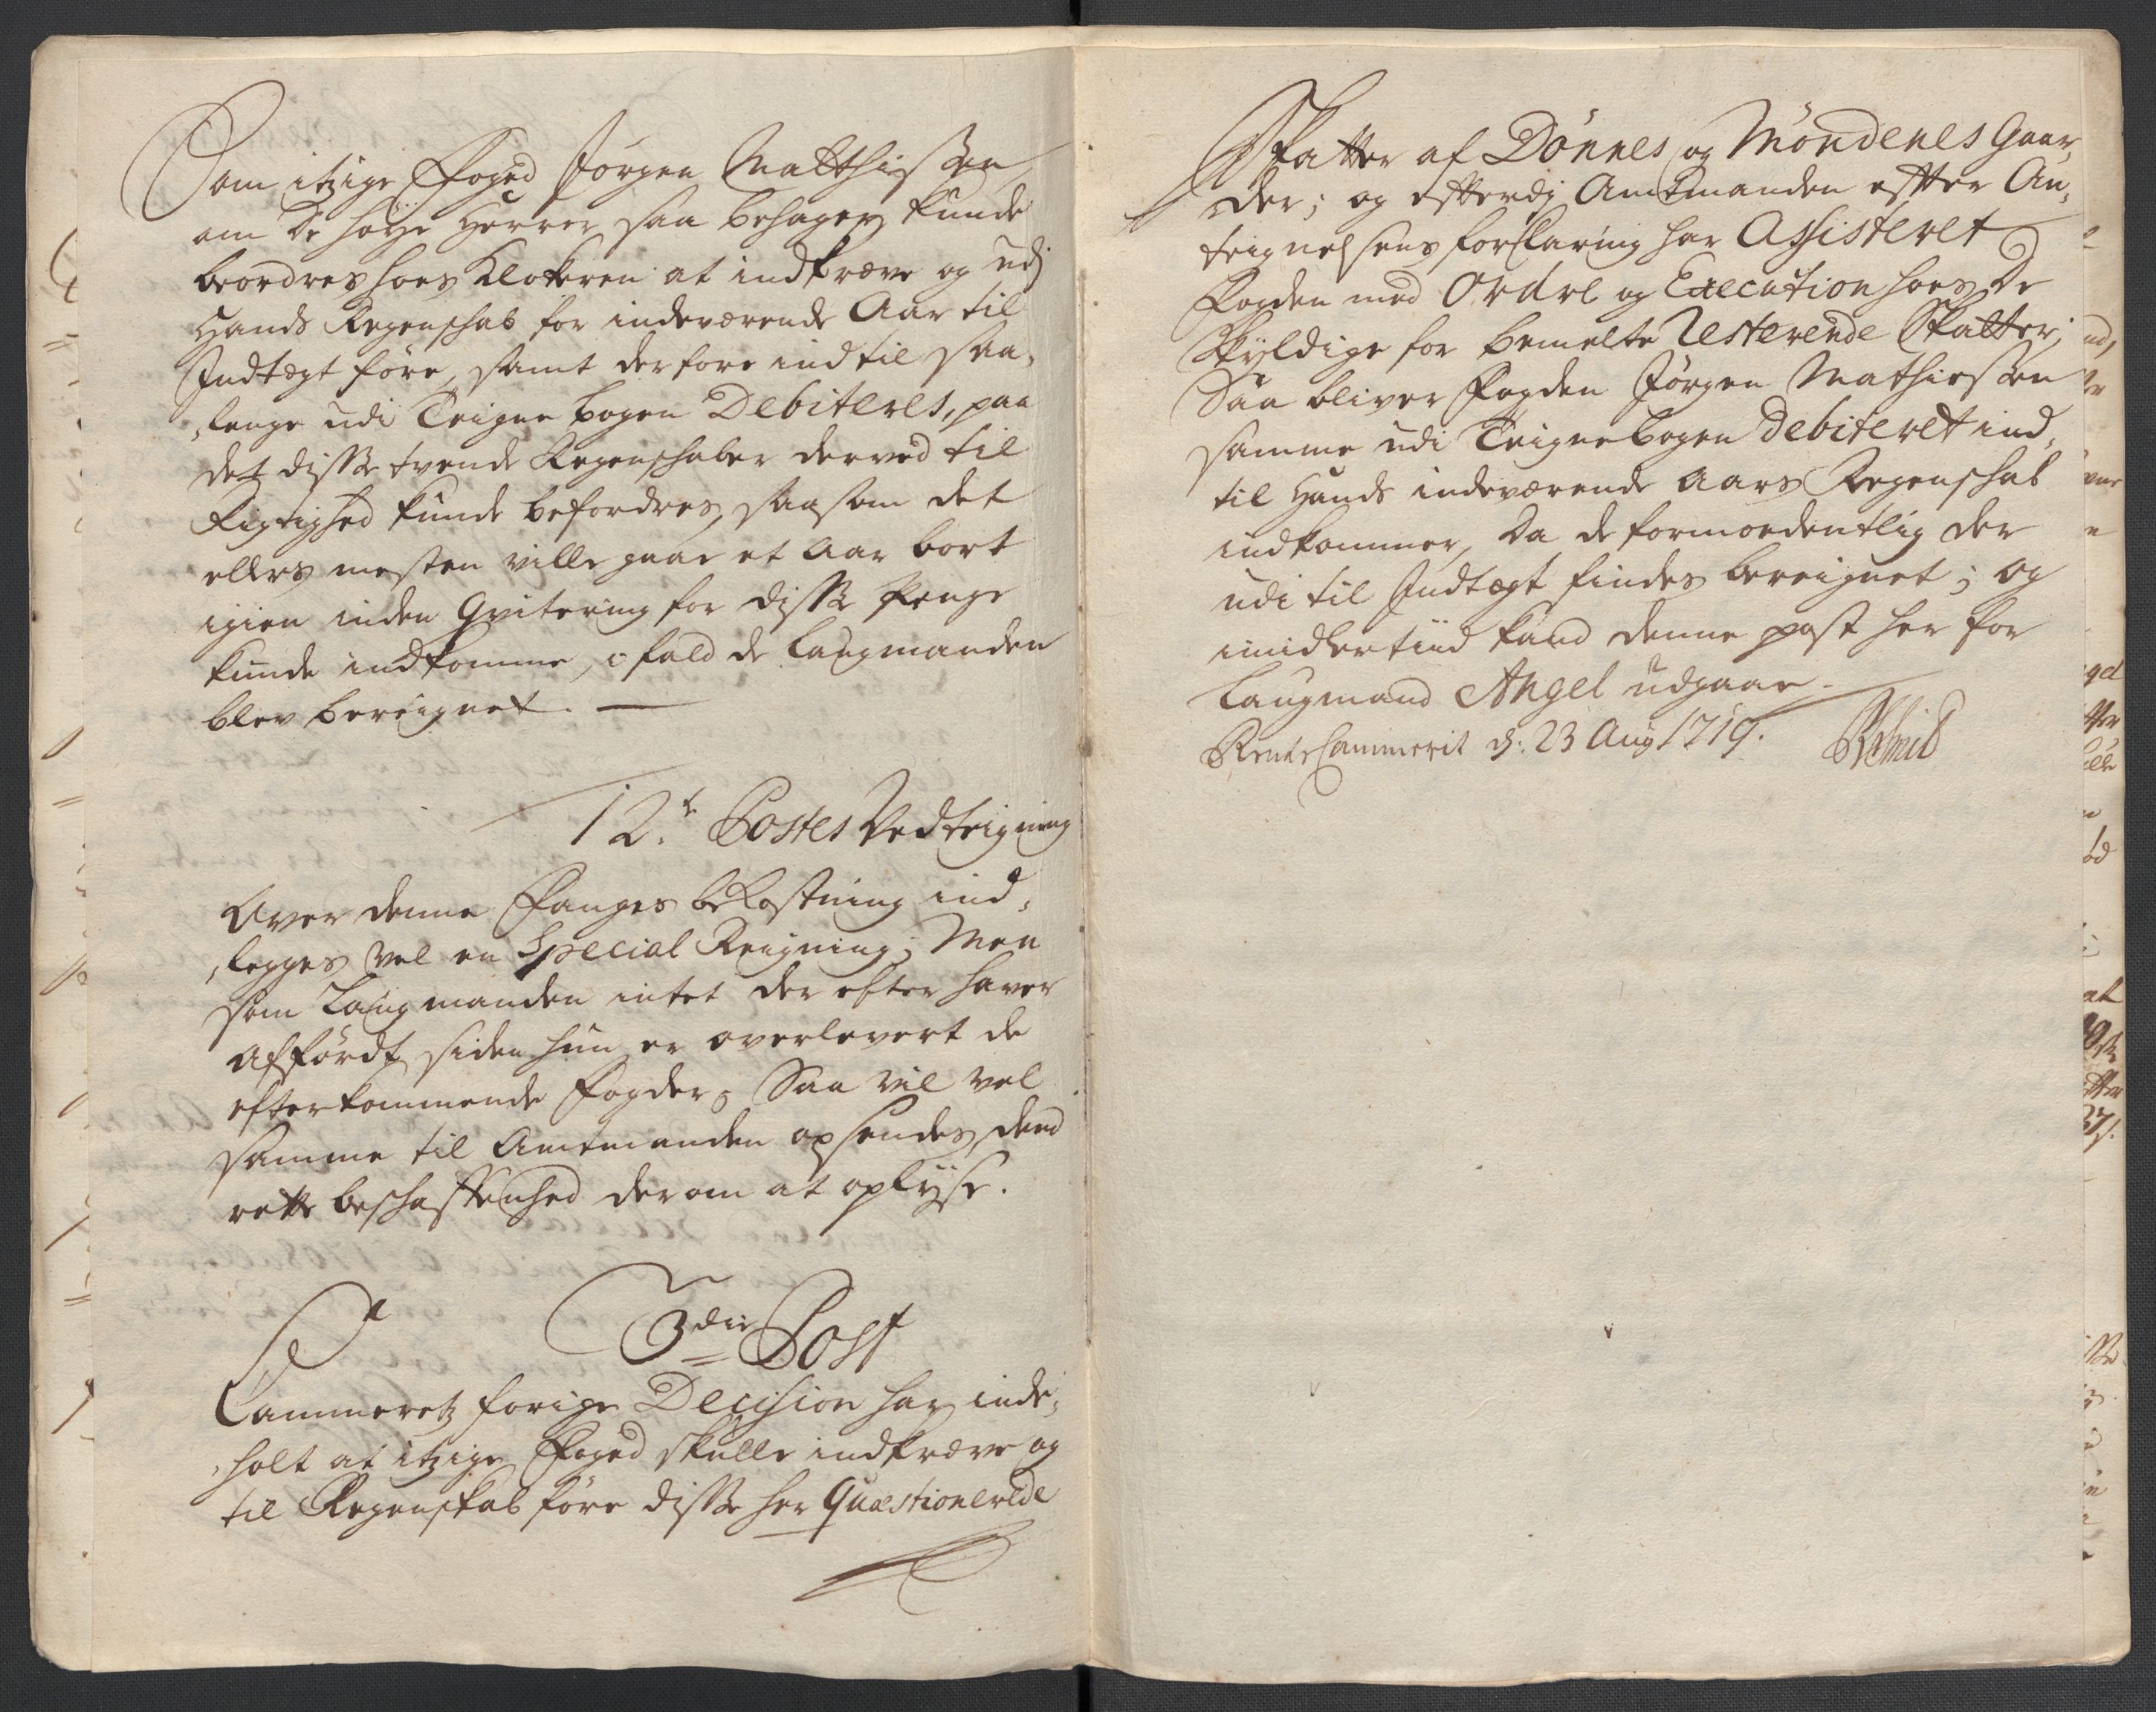 Som itzige Foged Jørgen Matthissen,
om de høye Herrer saa behager, kunde
beordres hoes Klokkeren at indkræve og udj
Hands Regenschab for indeværende Aar til
Indtægt føre, samt derfore indtil saa,
,lenge udi Teigne bogen Debiteres, paa
det disse tvende Regenschaber derved til
Rigtighed kunde befordres, saasom det
ellers mesten ville gaae et Aar bort
igien inden Qvitering for disse Penge
kunde indkomme, i fald de Laugmanden
blev bereignet. —
12.te Postes Vedteigning
Over denne Fanges bekostning ind,
,legges vel en Special Reigning; Men
som Laugmanden intet der efter haver
afførdt, siden hun er overlevert de
efterkommende Fogder, Saa vil vel
samme til Amtmanden opsendes, dend
rette beschaffenhed derom at oplyse.
3die Post
Cammeretz forige Decision har inde,
,holt at itzige Foged skulle indkræve og
til Regenskab føre disse her Quæstionerede
Skatter af Dönnes og Möndenes Gaar,
der; og efterdj Amtmanden efter An,
teignelsens forklaring har Assisteret
Fogden med Ordre og Execution hoes de
Skyldige for bemelte Resterende Skatter;
Saa bliver Fogden Jørgen Mathiessen
samme udi Teignebogen debiteret ind,
til Hands indeværende Aars Regenschab
indkommer, da de formoedentlig der
udi til Indtægt findes bereignet; og
imidlertiid kand denne post her for
Laugmand Angel udgaae.
RenteCammerit d: 23 Aug 1719.